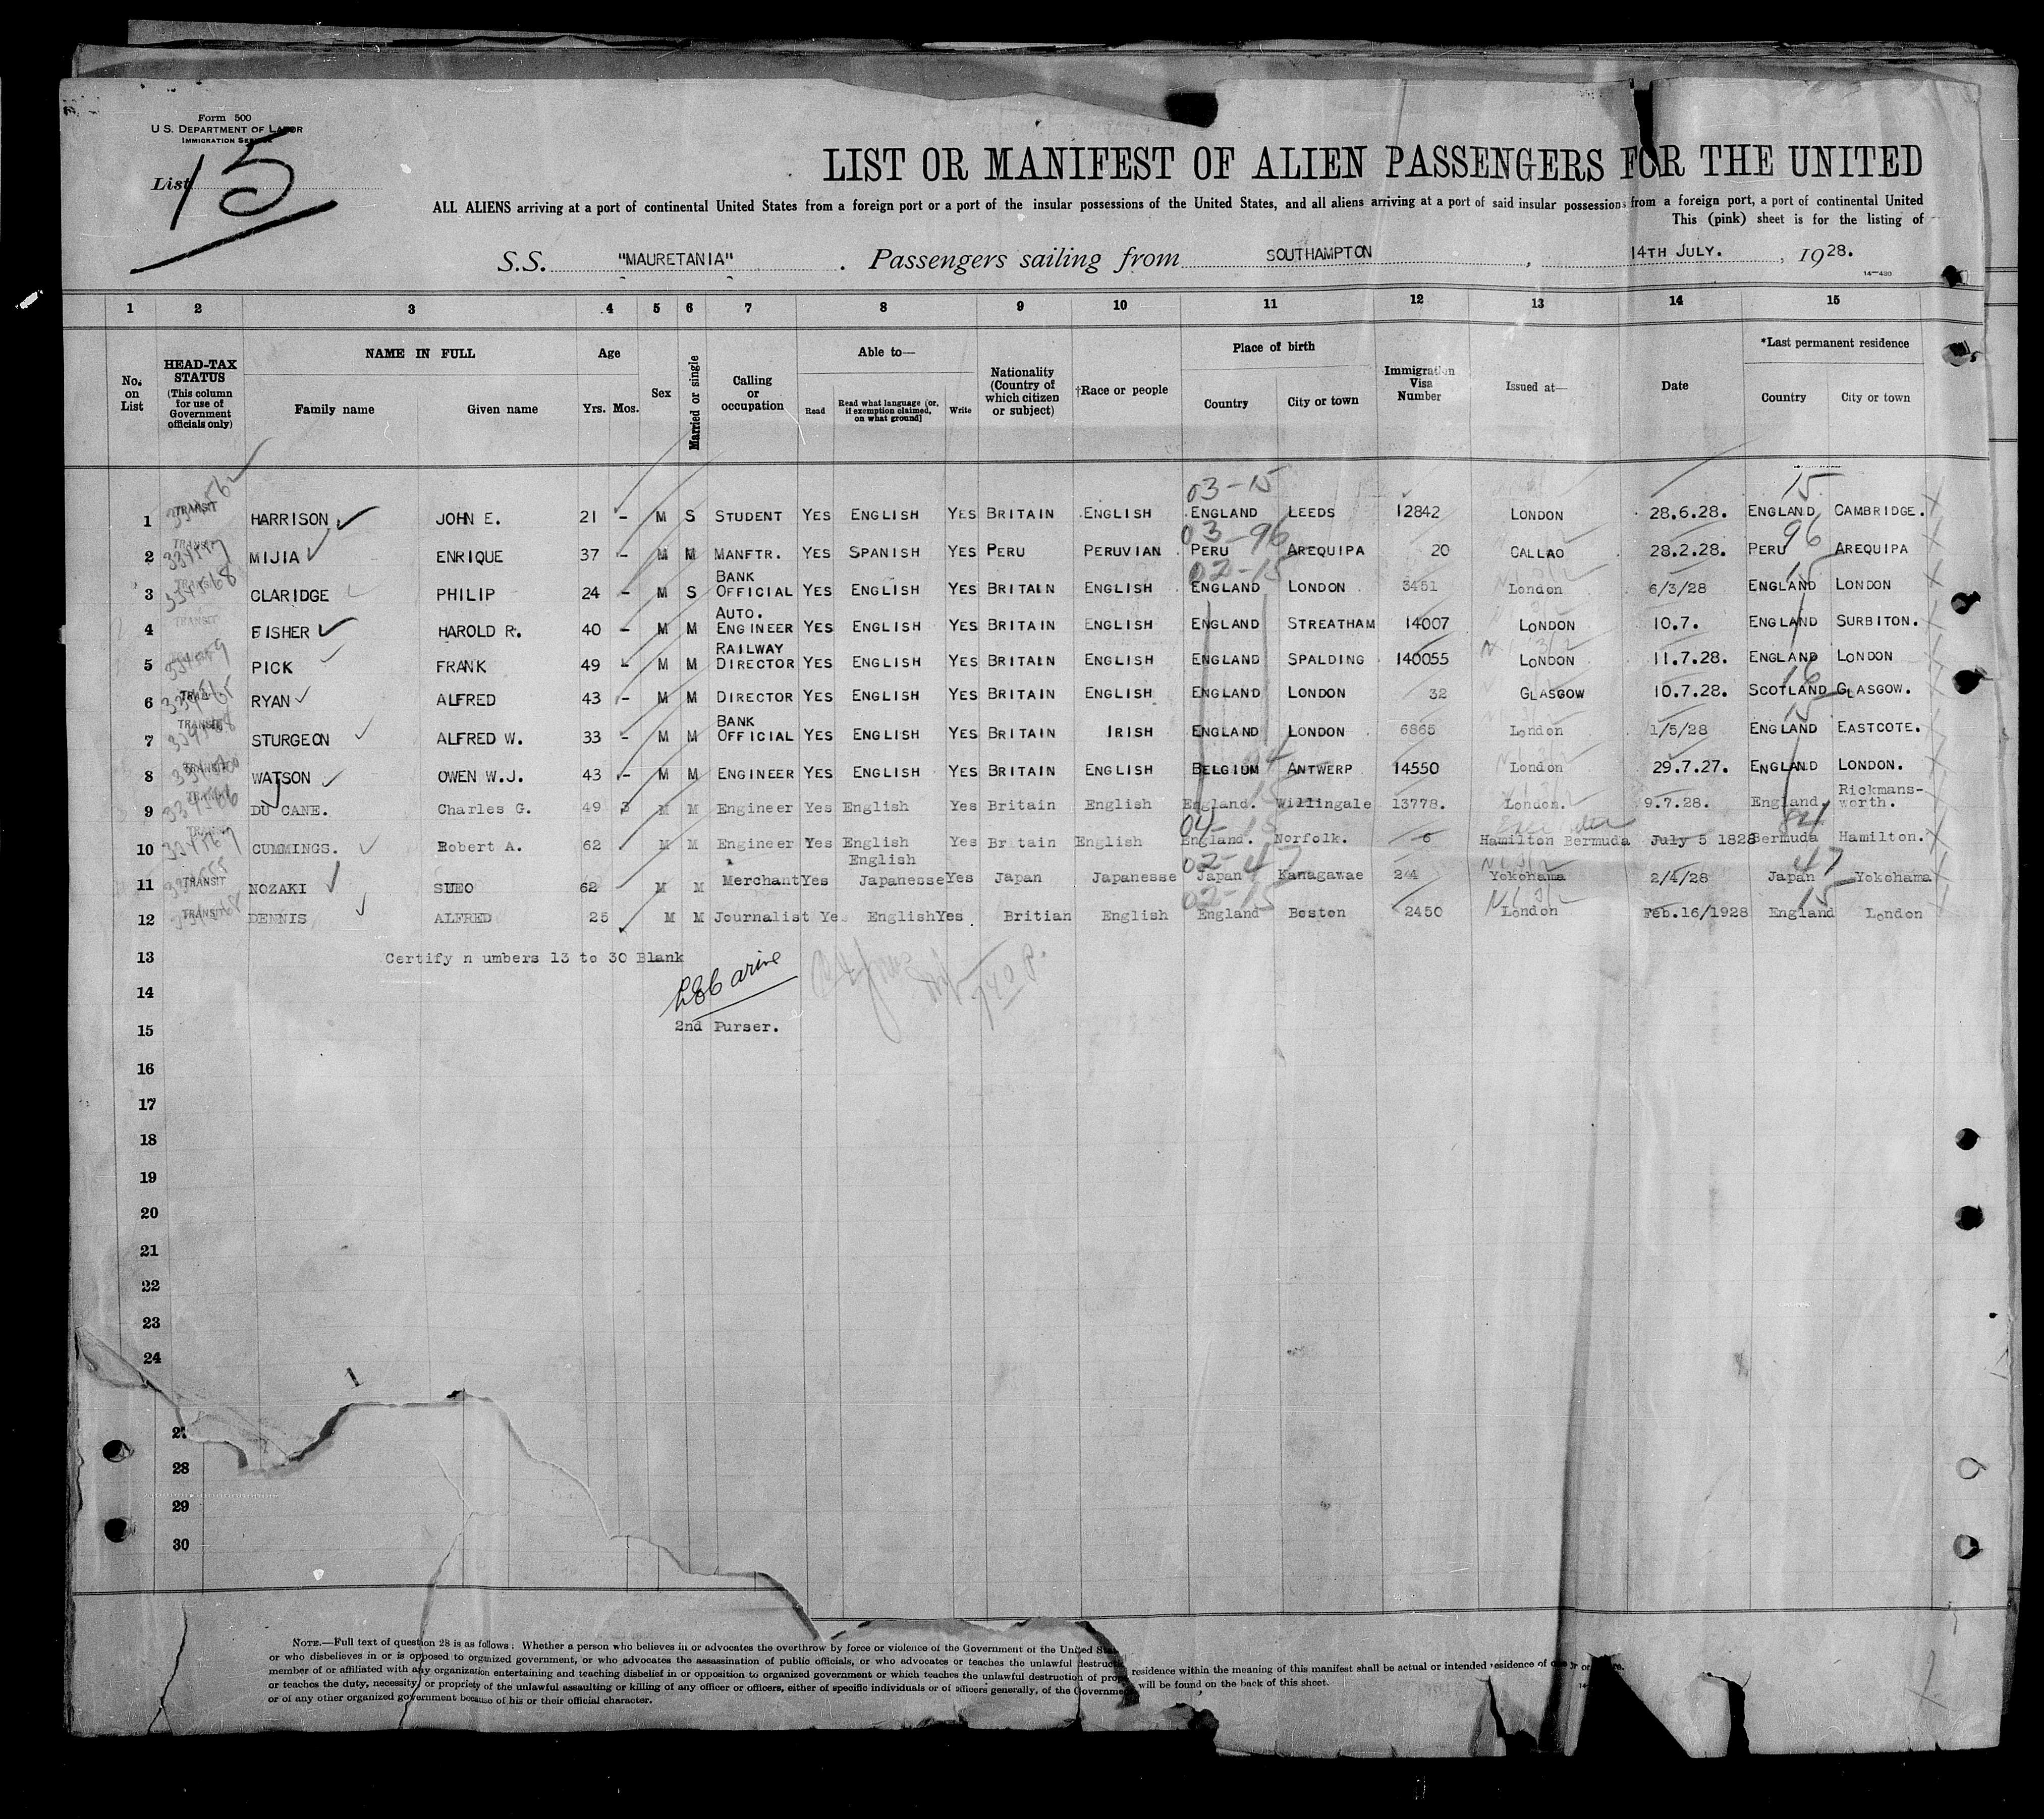 Form 500
U.S. DEPARTMENT OF LABOR
IMMIGRATION SERVICE
List 15
LIST OR MANIFEST OF ALIEN PASSENGERS FOR THE UNITED
ALL ALIENS arriving at a port of continental United States from a foreign port or a port of the insular possessions of the United States, and all aliens arriving at a port of said insular possessions from a foreign port, a port of continental United
This (pink) sheet is for the listing of
S.S. "MAURETANIA". Passengers sailing from SOUTHAMPTON, 14TH JULY., 1928.
14—430
1 2 3 4 5 6 7 8 9 10 11 12 13 14 15
No. on List
HEAD-TAX STATUS (This column for use of Government officials only)
NAME IN FULL Family name Given name
Age Yrs. Mos.
Sex
Married or single
Calling or occupation
Able to— Read Read what language [or, if exemption claimed, on what ground] Write
Nationality (Country of which citizen or subject)
†Race or people
Place of birth Country City or town
Immigration Visa Number
Issued at—
Date
*Last permanent residence Country City or town
03-15 15
1 TRANSIT HARRISON JOHN E. 21 - M S STUDENT YES ENGLISH YES BRITAIN ENGLISH ENGLAND LEEDS 12842 LONDON 28.6.28. ENGLAND CAMBRIDGE.
03-96 96
2 TRANSIT MIJIA ENRIQUE 37 - M M MANFTR. YES SPANISH YES PERU PERUVIAN PERU AREQUIPA 20 CALLAO 28.2.28. PERU AREQUIPA
02-15 15
3 TRANSIT CLARIDGE PHILIP 24 - M S BANK OFFICIAL YES ENGLISH YES BRITAIN ENGLISH ENGLAND LONDON 3451 London 6/3/28 ENGLAND LONDON
4 TRANSIT EISHER HAROLD R. 40 - M M AUTO. ENGINEER YES ENGLISH YES BRITAIN ENGLISH ENGLAND STREATHAM 14007 LONDON 10.7. ENGLAND SURBITON.
5 PICK FRANK 49 - M M RAILWAY DIRECTOR YES ENGLISH YES BRITAIN ENGLISH ENGLAND SPALDING 140055 LONDON 11.7.28. ENGLAND LONDON
16
6 TRANSIT RYAN ALFRED 43 - M M DIRECTOR YES ENGLISH YES BRITAIN ENGLISH ENGLAND LONDON 32 GLASGOW 10.7.28. SCOTLAND GLASGOW.
15
7 TRANSIT STURGEON ALFRED W. 33 - M M BANK OFFICIAL YES ENGLISH YES BRITAIN IRISH ENGLAND LONDON 6865 London 1/5/28 ENGLAND EASTCOTE.
8 TRANSIT WATSON OWEN W.J. 43 - M M ENGINEER YES ENGLISH YES BRITAIN ENGLISH BELGIUM ANTWERP 14550 London 29.7.27. ENGLAND LONDON.
9 DU CANE. Charles G. 49 3 M M Engineer Yes English Yes Britain English England. Willingale 13778. London. 9.7.28. England. Rickmans-worth.
04-15 84
10 CUMMINGS. Robert A. 62 M M Engineer Yes English Yes Britain English England. Norfolk. 6 Hamilton Bermuda July 5 1828 Bermuda Hamilton.
02-47 47
11 TRANSIT NOZAKI SUEO 62 M M Merchant Yes English Japanesse Yes Japan Japanesse Japan Kanagawae 24 Yokohama 2/4/28 Japan Yokohama
02-15 15
12 TRANSIT DENNIS ALFRED 25 M M Journalist Yes English Yes Britian English England Boston 2450 London Feb.16/1928 England London
13 Certify n umbers 13 to 30 Blank
14
15 2nd Purser.
16
17
18
19
20
21
22
23
24
28
29
30
NOTE.—Full text of question 28 is as follows: Whether a person who believes in or advocates the overthrow by force or violence of the Government of the United
or who disbelieves in or is opposed to organized government, or who advocates the assassination of public officials, or who advocates or teaches the unlawful
member of or affiliated with any organization entertaining and teaching disbelief in or opposition to organized government or which teaches the unlawful destruction of
or teaches the duty, necessity, or propriety of the unlawful assaulting or killing of any officer or officers, either of specific individuals or of officers generally, of the Government
or of any other organized government because of his or their official character.
residence within the meaning of this manifest shall be actual or intended residence of
will be found on the back of this sheet.